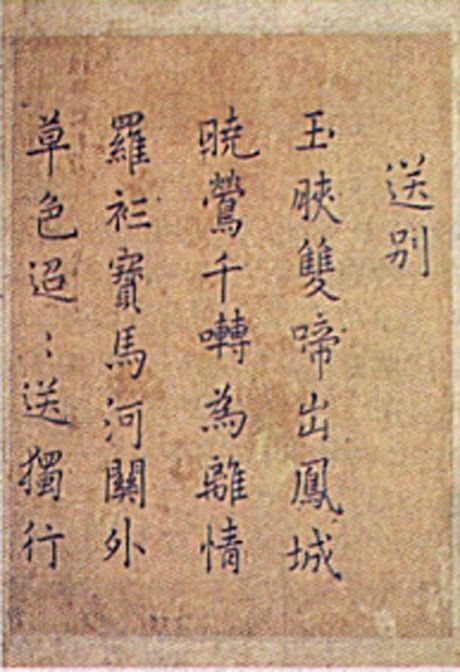 送别
玉𥇒雙啼出鳳城
曉鶯千囀為離情
羅衫寶馬河關外
草色迢〻送獨行